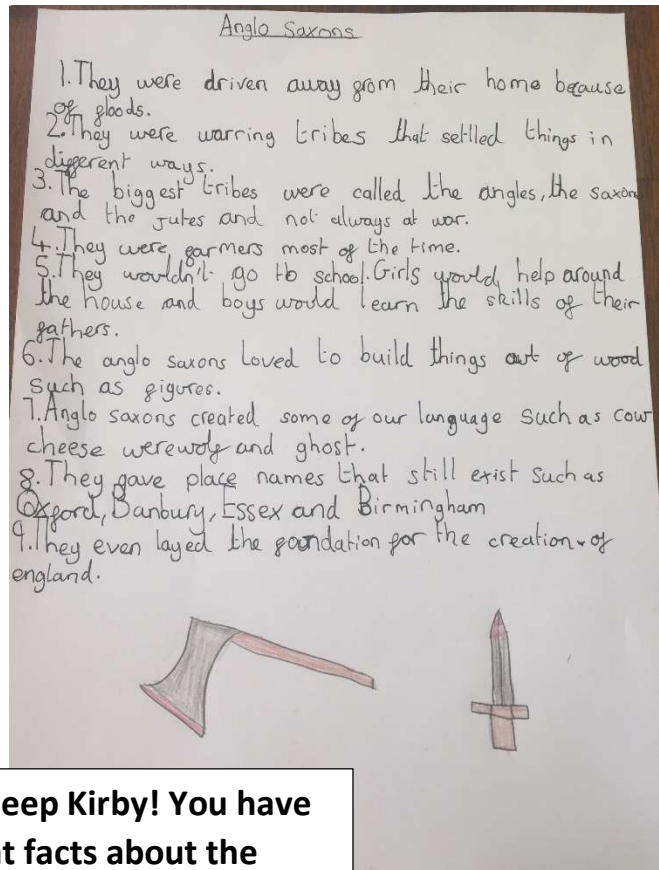 Anglo Saxons
1. They were driven away from their home because
of floods.
2. They were warring tribes that settled things in
different ways.
3. The biggest tribes were called the angles, the saxons
and the jutes and not always at war.
4. They were farmers most of the time.
5. They wouldn't go to school. Girls would help around
the house and boys would learn the skills of their
fathers.
6. The anglo saxons loved to build things out of wood
such as figures.
7. Anglo saxons created some of our language such as cow
cheese werewolf and ghost.
8. They gave place names that still exist such as
Oxford, Banbury, Essex and Birmingham
9. They even layed the foundation for the creation of
england.
eep Kirby! You have
t facts about the